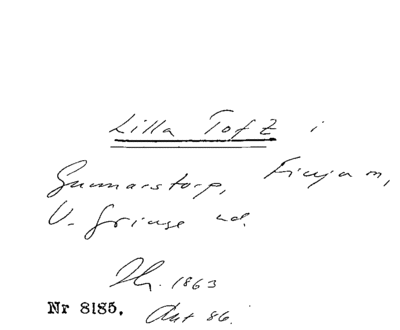 Lilla Tofz i
Gunnarstorp, Finja m,
V. Göinge hd.
Th. 1863
Nr 8185. Akt 86.